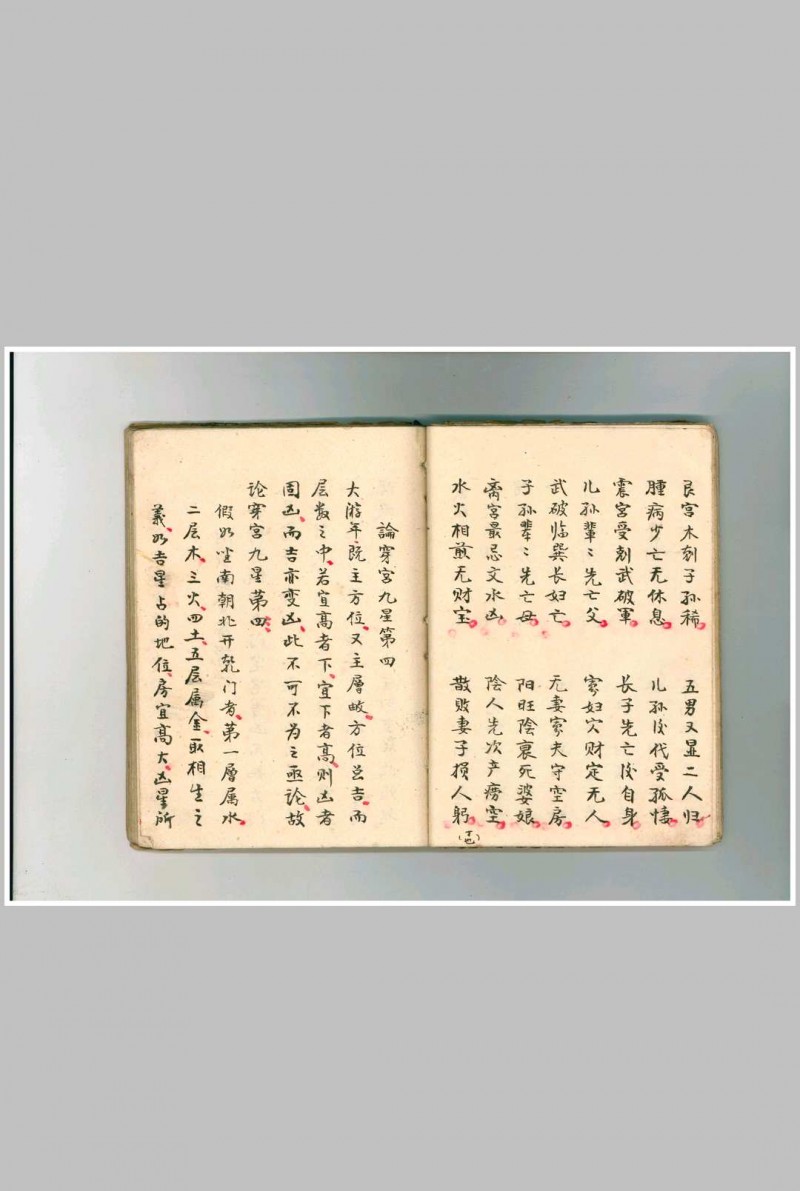 艮宫木刻子孙稀 五男又显二人归
腫病少亡无休息 儿孙後代受孤悽
震宫受刻武破軍 长子先亡後自身
儿孙辈〻先亡父 寡妇欠财定无人
武破临巽长妇亡 无妻寡夫守空房
子孙辈〻先亡母 阳旺陰衰死婆娘
离宫最忌文水凶 陰人先次产痨空
水火相煎无财宝 散败妻子损人躬
論穿宫九星第四
大游年既主方位、又主層故、方位总吉、而
层数之中、若宜高者下、宜下者高、则凶者
固凶、而吉亦变凶、此不可不为之亟论、故
论穿宫九星第四、
假如坐南朝北开乾门者、第一層属水、
二层木、三火、四土、五层属金、取相生之
義、如吉星占的地位、房宜高大、凶星所